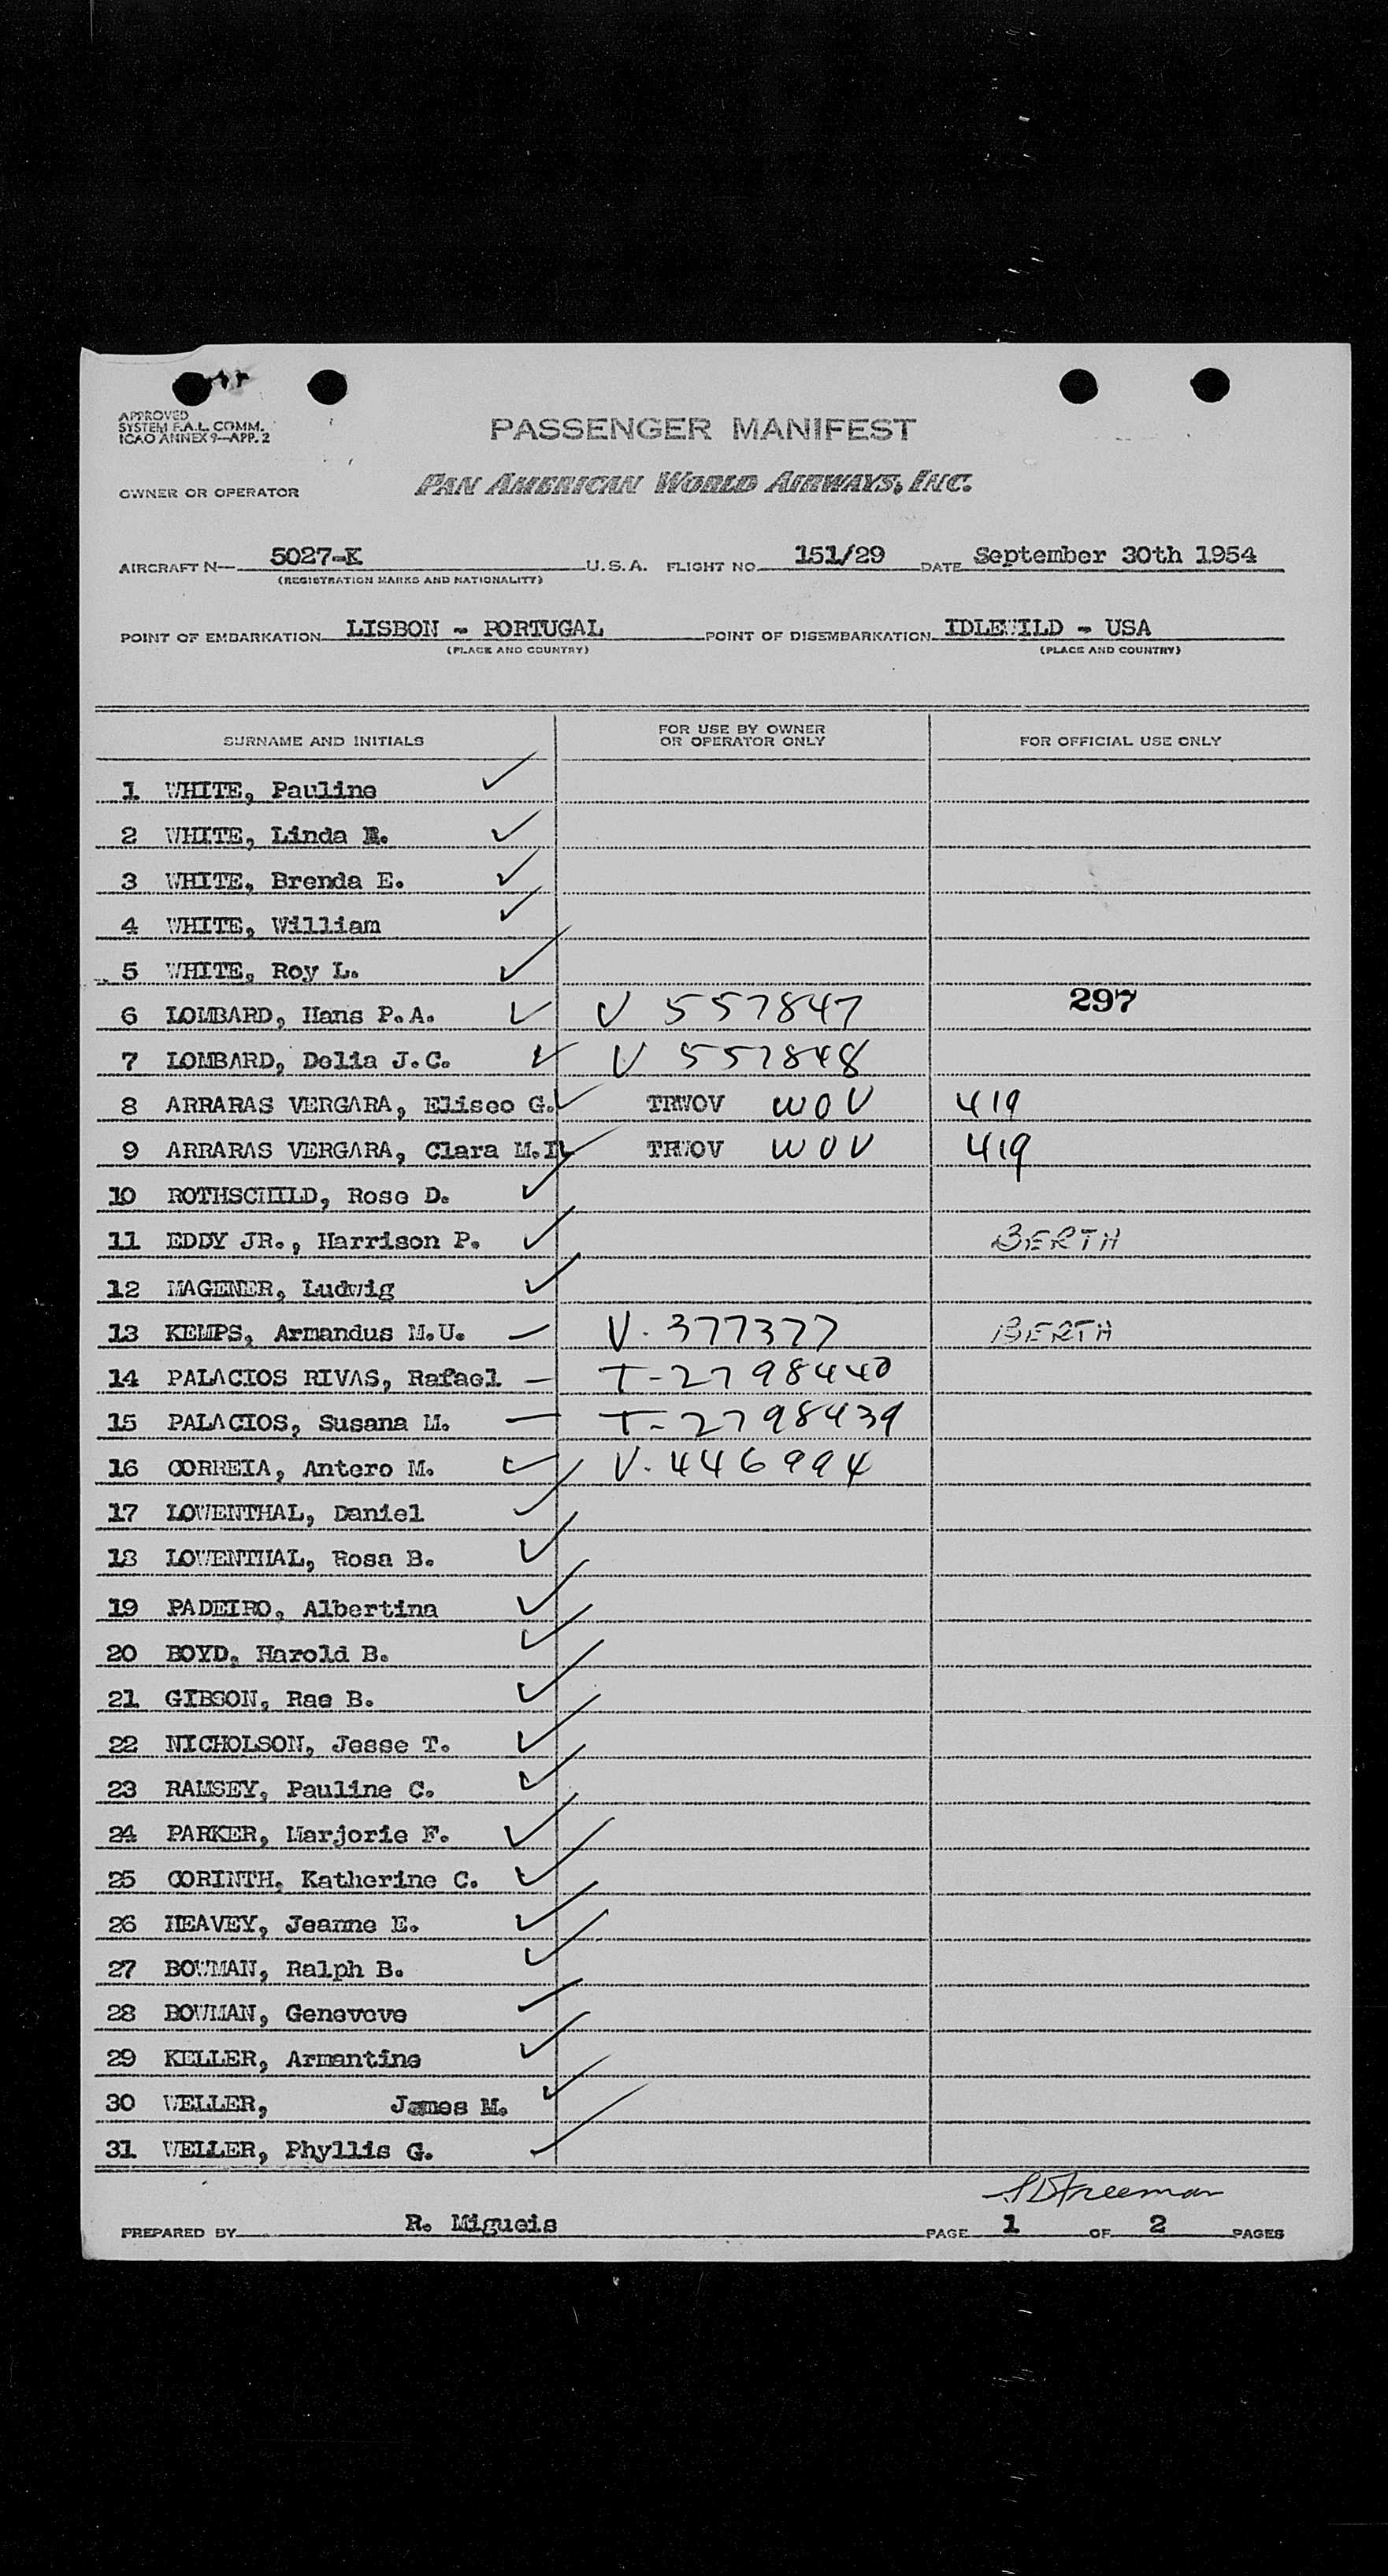 APPROVED
SYSTEM F.A.L. COMM.
ICAO ANNEX 9—APP. 2
PASSENGER MANIFEST
OWNER OR OPERATOR PAN AMERICAN WORLD AIRWAYS, INC.
AIRCRAFT N— 5027-K U.S.A. FLIGHT NO. 151/29 DATE September 30th 1954
(REGISTRATION MARKS AND NATIONALITY)
POINT OF EMBARKATION LISBON - PORTUGAL POINT OF DISEMBARKATION IDLEWILD - USA
(PLACE AND COUNTRY) (PLACE AND COUNTRY)
SURNAME AND INITIALS FOR USE BY OWNER OR OPERATOR ONLY FOR OFFICIAL USE ONLY
1 WHITE, Pauline ✓
2 WHITE, Linda ✓
3 WHITE, Brenda E. ✓
4 WHITE, William ✓
5 WHITE, Roy L. ✓
297
6 LOMBARD, Hans P.A. ✓ V 557847
7 LOMBARD, Delia J.C. ✓ V 557848
8 ARRARAS VERGARA, Eliseo G. ✓ TRWOV WOV 419
9 ARRARAS VERGARA, Clara M. ✓ TRWOV WOV 419
10 ROTHSCHILD, Rose D. ✓
11 EDDY JR., Harrison P. ✓ BERTH
12 MAGENER, Ludwig ✓
13 KEMPS, Armandus M.U. — V. 377327 BERTH
14 PALACIOS RIVAS, Rafael — T-2798440
15 PALACIOS, Susana M. — T-2798439
16 CORREIA, Antero M. ✓ V. 446994
17 LOWENTHAL, Daniel ✓
18 LOWENTHAL, Rosa B. ✓
19 PADEIRO, Albertina ✓
20 BOYD, Harold B. ✓
21 GIBSON, Rae B. ✓
22 NICHOLSON, Jesse T. ✓
23 RAMSEY, Pauline C. ✓
24 PARKER, Marjorie F. ✓
25 CORINTH, Katherine C. ✓
26 HEAVEY, Jeanne E. ✓
27 BOWMAN, Ralph B. ✓
28 BOWMAN, Geneveve ✓
29 KELLER, Armantine ✓
30 WELLER, James M. ✓
31 WELLER, Phyllis G. ✓
Freeman
PREPARED BY R. Migueis PAGE 1 OF 2 PAGES